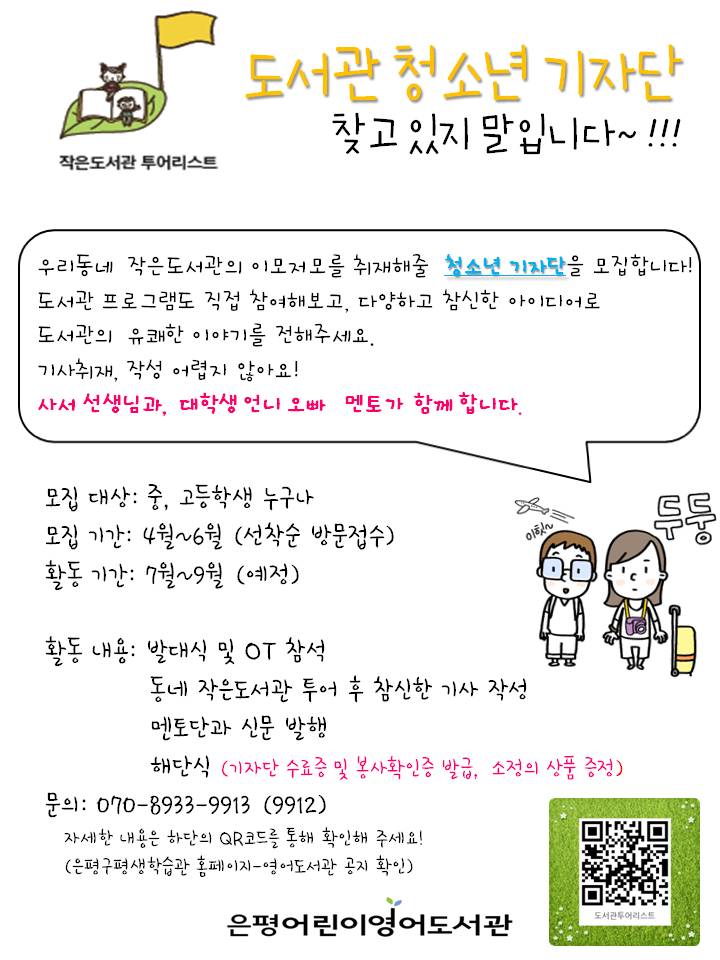 도서관 청소년 기자단
찾고 있지 말입니다~ !!!
작은도서관 투어리스트
우리동네 작은도서관의 이모저모를 취재해줄 청소년 기자단을 모집합니다!
도서관 프로그램도 직접 참여해보고, 다양하고 참신한 아이디어로
도서관의 유쾌한 이야기를 전해주세요.
기사취재, 작성 어렵지 않아요!
사서 선생님과, 대학생 언니 오빠 멘토가 함께 합니다.
모집 대상: 중, 고등학생 누구나
모집 기간: 4월~6월 (선착순 방문접수)
활동 기간: 7월~9월 (예정)
이힛~
두둥
활동 내용: 발대식 및 OT 참석
동네 작은도서관 투어 후 참신한 기사 작성
멘토단과 신문 발행
해단식 (기자단 수료증 및 봉사확인증 발급, 소정의 상품 증정)
문의: 070-8933-9913 (9912)
자세한 내용은 하단의 QR코드를 통해 확인해 주세요!
(은평구평생학습관 홈페이지-영어도서관 공지 확인)
도서관투어리스트
은평어린이영어도서관